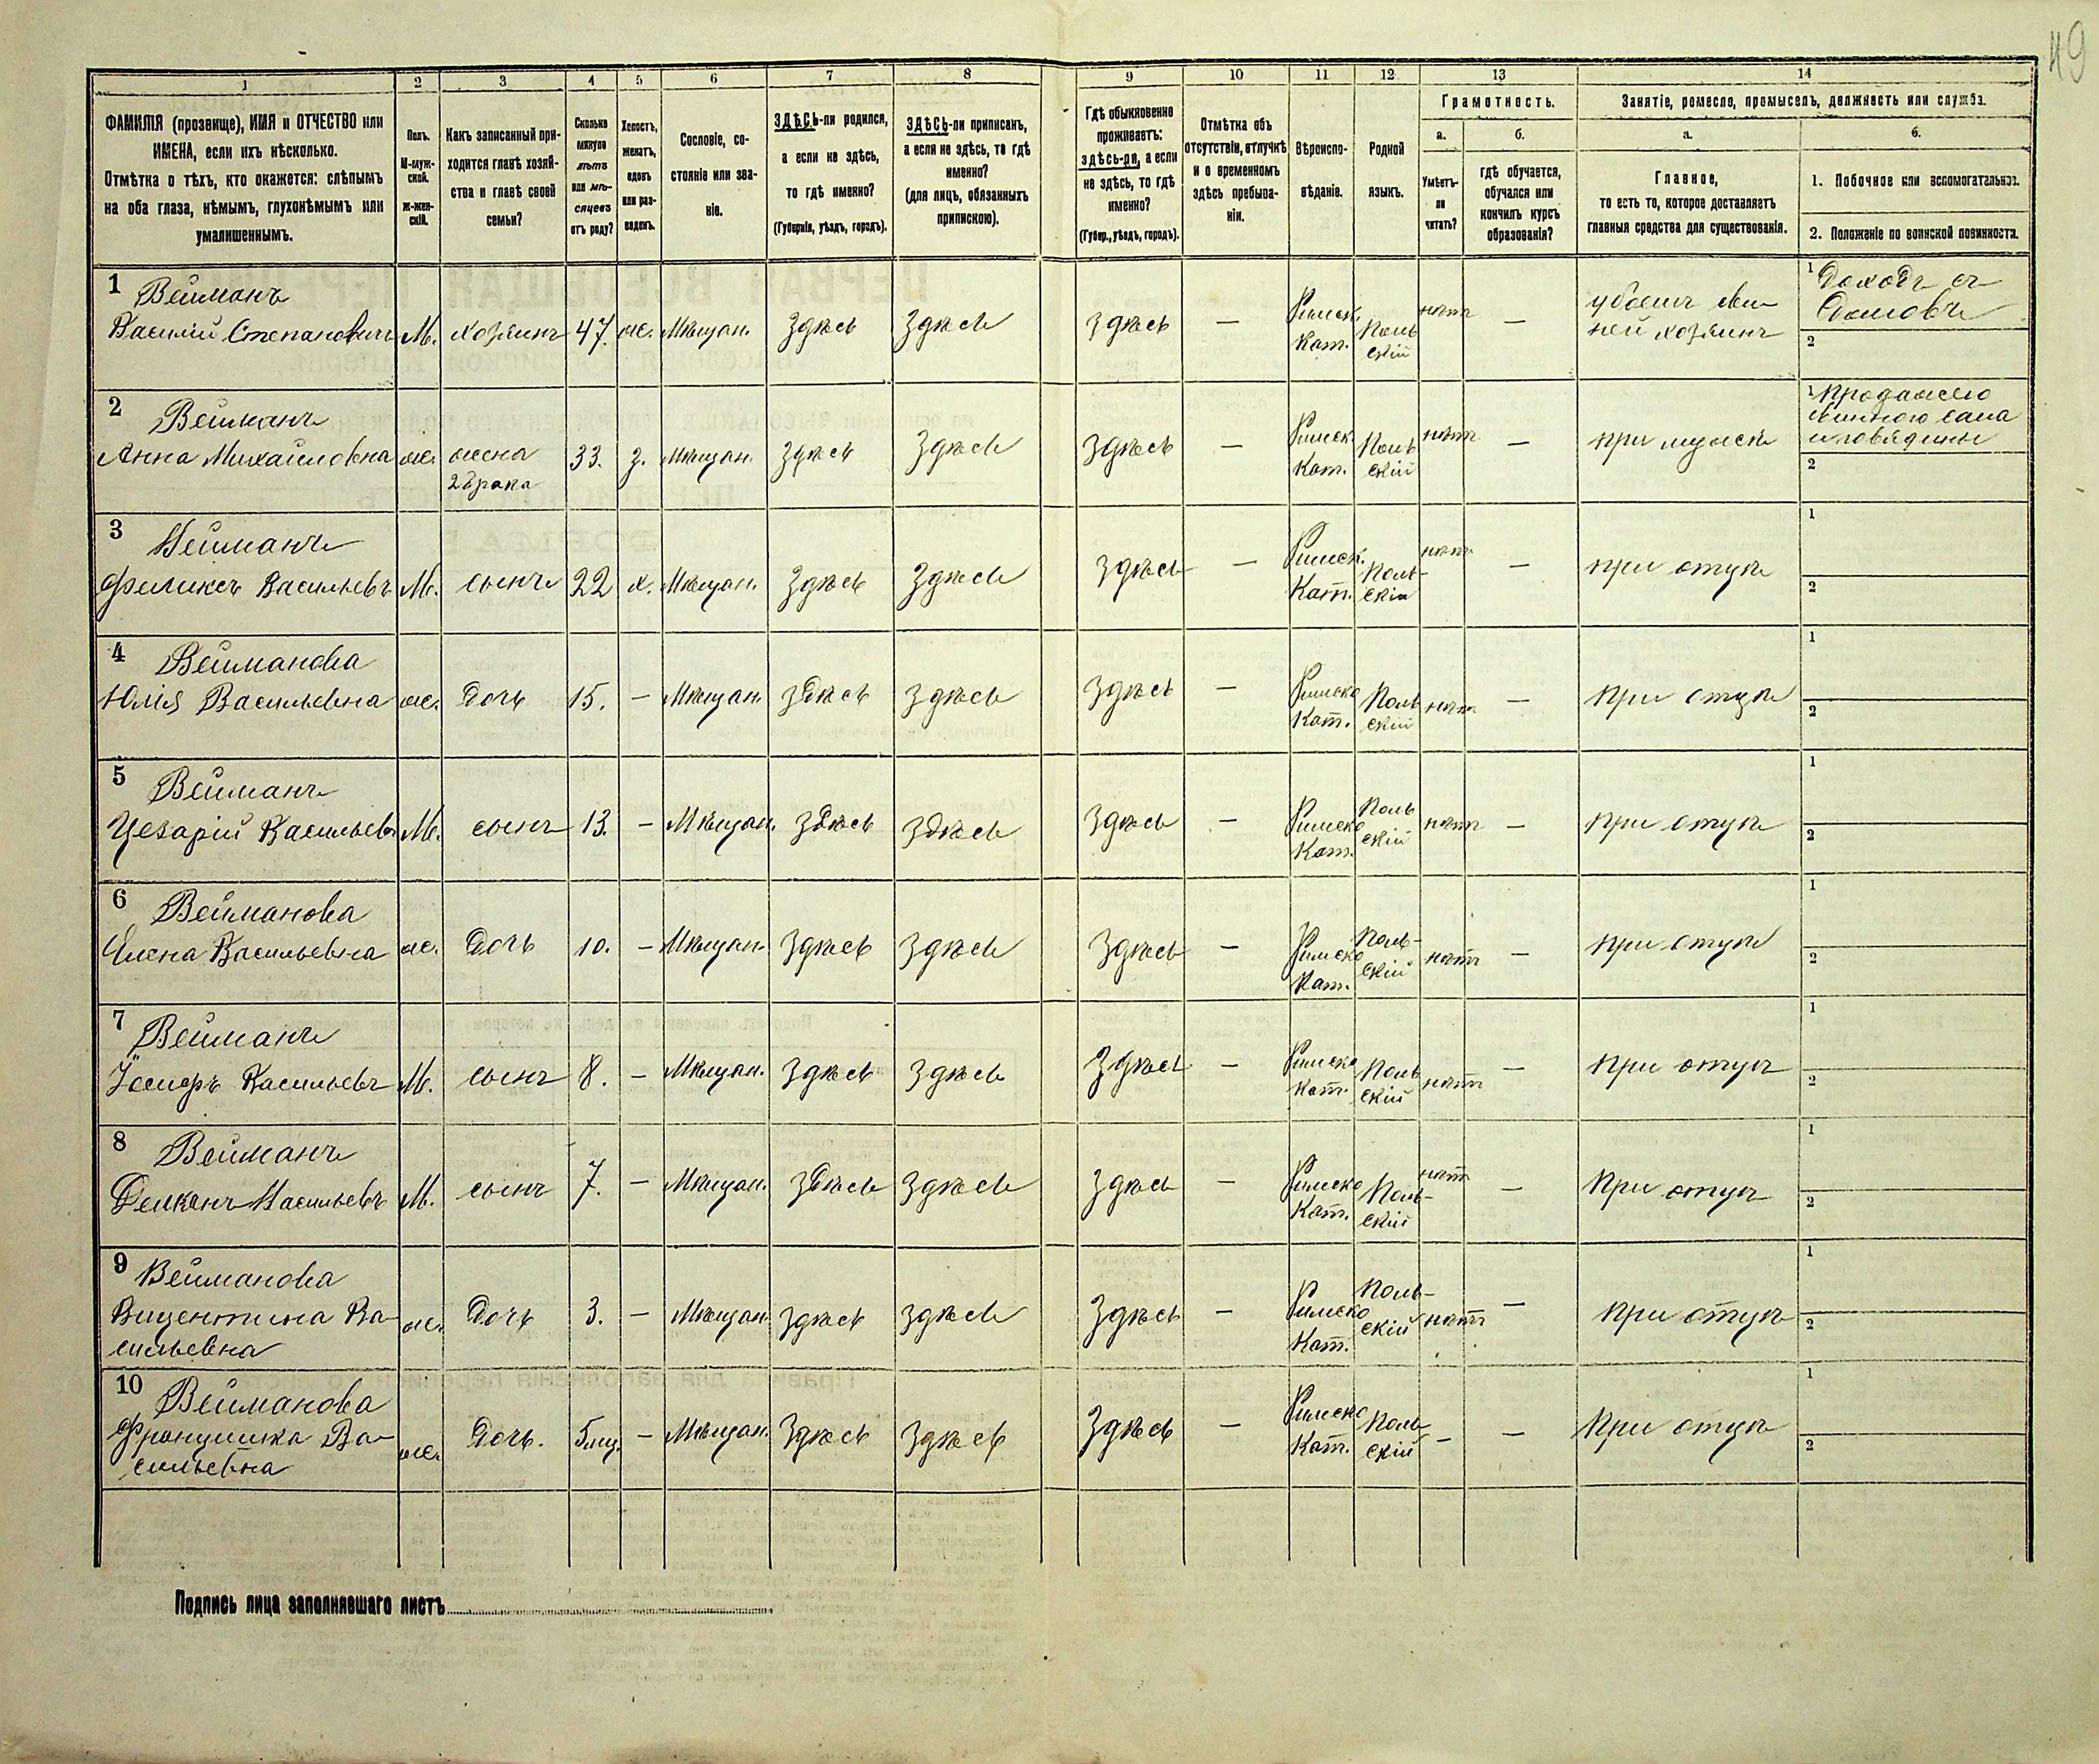 49
1 2 3 4 5 6 7 8 9 10 11 12 13 14
ФАМИЛІЯ (прозвище), ИМЯ и ОТЧЕСТВО или
ИМЕНА, если ихъ нѣсколько.
Отмѣтка о тѣхъ, кто окажется: слѣпымъ
на оба глаза, нѣмымъ, глухонѣмымъ или
умалишеннымъ.
Полъ.
М-муж-
ской.
Ж-жен-
скій.
Какъ записанный при-
ходится главѣ хозяй-
ства и главѣ своей
семьи?
Сколько
минуло
лѣтъ
или мѣ-
сяцевъ
отъ роду?
Холостъ,
женатъ,
вдовъ
или раз-
веденъ.
Сословіе, со-
стояніе или зва-
ніе.
ЗДѢСЬ-ли родился,
а если не здѣсь,
то гдѣ именно?
(Губернія, уѣздъ, городъ).
ЗДѢСЬ-ли приписанъ,
а если не здѣсь, то гдѣ
именно?
(для лицъ, обязанныхъ
припискою).
Гдѣ обыкновенно
проживаетъ:
здѣсь-ли, а если
не здѣсь, то гдѣ
именно?
(Губер., уѣздъ, городъ).
Отмѣтка объ
отсутствіи, отлучкѣ
и о временномъ
здѣсь пребыва-
ніи.
Вѣроиспо-
вѣданіе.
Родной
языкъ.
Грамотность.
а.
Умѣетъ-
ли
читать?
б.
гдѣ обучается,
обучался или
кончилъ курсъ
образованія?
Занятіе, ремесло, промыселъ, должность или служба.
а.
Главное,
то есть то, которое доставляетъ
главныя средства для существованія.
б.
1. Побочное или вспомогательное.
2. Положеніе по воинской повинности.
1 Вейманъ
Василій Степановичъ М. хозяинъ 47. ж. Мѣщан. Здѣсь Здѣсь Здѣсь — Римск. Кат. Польскій нѣтъ — убоемъ сви-
ней хозяинъ
1 Доходъ съ
Домовъ
2
2 Вейманъ
Анна Михайловна ж. жена
2 брака
33. з. Мѣщан. Здѣсь Здѣсь Здѣсь — Римск. Кат. Польскій нѣтъ — при мужѣ
1 Продажею
свинного сала
и говядины
2
3 Вейманъ
Феликсъ Васильевъ М. сынъ 22 х. Мѣщан. Здѣсь Здѣсь Здѣсь — Римск. Кат. Польскій нѣтъ — при отцѣ
1
2
4 Вейманова
Юлія Васильевна ж. Дочь 15. — Мѣщан. Здѣсь Здѣсь Здѣсь — Римско Кат. Польскій нѣтъ — при отцѣ
1
2
5 Вейманъ
Цезарій Васильевъ М. сынъ 13. — Мѣщан. Здѣсь Здѣсь Здѣсь — Римско Кат. Польскій нѣтъ — при отцѣ
1
2
6 Вейманова
Елена Васильевна ж. Дочь 10. — Мѣщан. Здѣсь Здѣсь Здѣсь — Римско Кат. Польскій нѣтъ — при отцѣ
1
2
7 Вейманъ
Іосифъ Васильевъ М. сынъ 8. — Мѣщан. Здѣсь Здѣсь Здѣсь — Римско Кат. Польскій нѣтъ — при отцѣ
1
2
8 Вейманъ
Васильевъ М. сынъ 7. — Мѣщан. Здѣсь Здѣсь Здѣсь — Римско Кат. Польскій нѣтъ — При отцѣ
1
2
9 Вейманова
Вицентина Ва-
сильевна ж. Дочь 3. — Мѣщан. Здѣсь Здѣсь Здѣсь — Римско Кат. Польскій нѣтъ — при отцѣ
1
2
10 Вейманова
Францишка Ва-
сильевна ж. Дочь. 5 мц. — Мѣщан. Здѣсь Здѣсь Здѣсь — Римско Кат. Польскій — — При отцѣ
1
2
Подпись лица заполнявшаго листъ